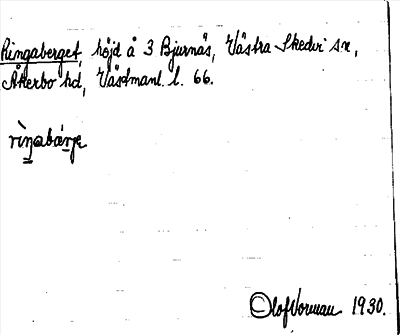 Ringaberget, höjd å 3 Bjurnäs, Västra Skedvi sn,
Åkerbo hd, Västmanl. l. 66.
rìŋabárje
Olof Norman 1930.